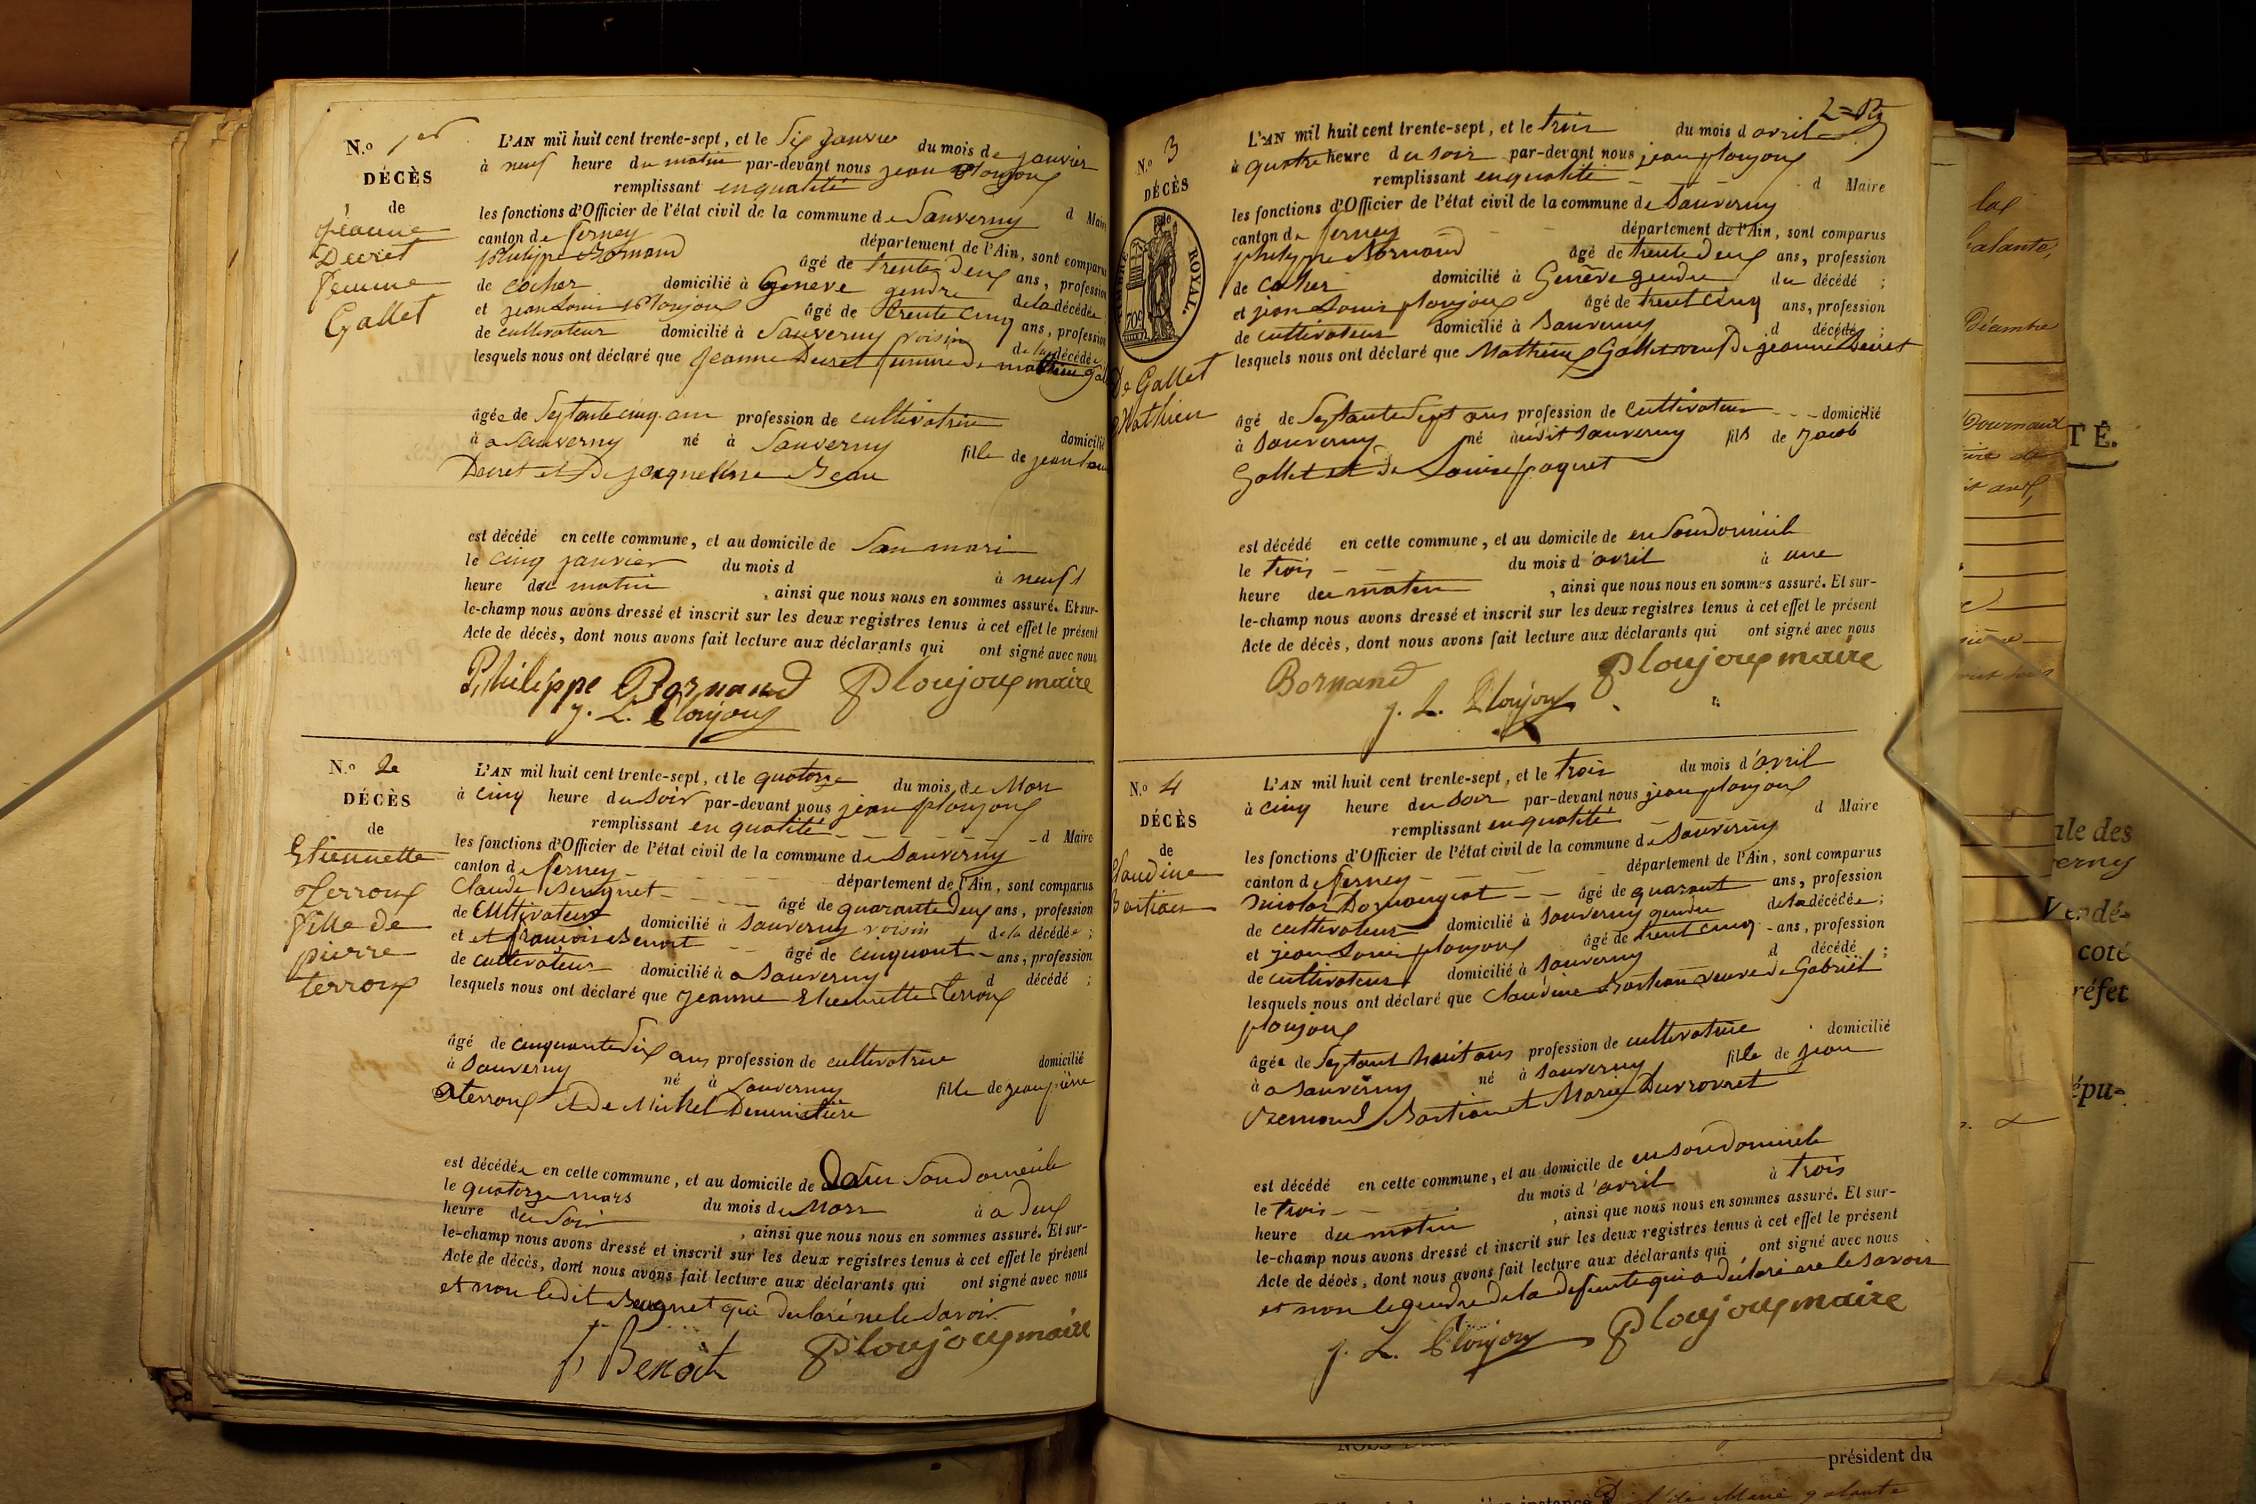 N.o 1er
DÉCÈS
de
Jeanne
Decret
femme
Gallet
L'AN mil huit cent trente-sept, et le six janvier du mois de janvier
à neuf heure du matin par-devant nous jean Ploujoux
remplissant en qualité d Maire
les fonctions d'Officier de l'état civil de la commune de Sauverny
canton de ferney département de l'Ain, sont comparus
philippe Bornand âgé de trente deux ans, profession
de cocher domicilié à Genève gendre de la décédée
et jean Louis Ploujoux âgé de trente cinq ans, profession
de cultivateur domicilié à Sauverny voisin de la décédée
lesquels nous ont déclaré que Jeanne Decret femme de mathieu
âgée de septante cinq ans profession de cultivatrice domicilié
à a Sauverny né à Sauverny fille de jean
Decret et De jacquelline
est décédé en cette commune, et au domicile de Son mari
le cinq janvier du mois d à neuf
heure du matin , ainsi que nous nous en sommes assuré. Et sur-
le-champ nous avons dressé et inscrit sur les deux registres tenus à cet effet le présent
Acte de décès, dont nous avons fait lecture aux déclarants qui ont signé avec nous
Philippe Bornand Ploujoux maire
J. L. Ploujoux
N.o 2e
DÉCÈS
de
Etiennette
Terroux
fille de
pierre
terroux
L'AN mil huit cent trente-sept, et le quatorze du mois de Mars
à cinq heure du soir par-devant nous jean ploujoux
remplissant en qualité d Maire
les fonctions d'Officier de l'état civil de la commune de Sauverny
canton de ferney département de l'Ain, sont comparus
Claude Bugnet âgé de quarante deux ans, profession
de Cultivateur domicilié à Sauverny voisin de la décédée ;
et et françois Benoit âgé de cinquante ans, profession
de cultivateur domicilié à a Sauverny d décédé ;
lesquels nous ont déclaré que jeanne Etiennette Terroux
âgé de cinquante six ans profession de cultivatrice domicilié
à Sauverny né à Sauverny fille de jean pierre
terroux et de Michel
est décédée en cette commune, et au domicile de Dans Son Domicile
le quatorze mars du mois de Mars à a Deux
heure du Soir , ainsi que nous nous en sommes assuré. Et sur-
le-champ nous avons dressé et inscrit sur les deux registres tenus à cet effet le présent
Acte de décès, dont nous avons fait lecture aux déclarants qui ont signé avec nous
et non ledit Bugnet qui declaré ne le Savoir
f. Benoit Ploujoux maire
N.o 3
DÉCÈS
de
ROYAL.
70c
De Gallet
Mathieu
L'AN mil huit cent trente-sept, et le trois du mois d avril
à quatre heure du soir par-devant nous jean ploujoux
remplissant en qualité d Maire
les fonctions d'Officier de l'état civil de la commune de Sauverny
canton de ferney département de l'Ain, sont comparus
philippe Bornand âgé de trente deux ans, profession
de cocher domicilié à Genève gendre du décédé ;
et jean Louis ploujoux âgé de trent cinq ans, profession
de cultivateur domicilié à Sauverny d décédé ;
lesquels nous ont déclaré que Mathieux Gallet veuf De jeanne Decret
âgé de Septante Sept ans profession de Cultivateur domicilié
à Sauverny né audit Sauverny fils de Jacob
Gallet et de Louise paquet
est décédé en cette commune, et au domicile de en Son Domicile
le trois du mois d'avril à une
heure du matin , ainsi que nous nous en sommes assuré. Et sur-
le-champ nous avons dressé et inscrit sur les deux registres tenus à cet effet le présent
Acte de décès, dont nous avons fait lecture aux déclarants qui ont signé avec nous
Bornand Ploujoux maire
J. L. Ploujoux
N.o 4
DÉCÈS
de
Claudine
Bastian
L'AN mil huit cent trente-sept, et le trois du mois d'avril
à cinq heure du soir par-devant nous jean ploujoux
remplissant en qualité d Maire
les fonctions d'Officier de l'état civil de la commune de Sauverny
canton de ferney département de l'Ain, sont comparus
nicolas âgé de quarant ans, profession
de cultivateur domicilié à Sauverny gendre de la décédée ;
et jean Louis ploujoux âgé de trent cinq ans, profession
de cultivateur domicilié à Sauverny d décédé ;
lesquels nous ont déclaré que Claudine Bastian veuve de Gabriel
ploujoux
âgée de Septant huit ans profession de cultivatrice domicilié
à a Sauverny né à Sauverny fille de jean
Remond Bastian et Marie
est décédé en cette commune, et au domicile de en son domicile
le trois du mois d'avril à trois
heure du matin , ainsi que nous nous en sommes assuré. Et sur-
le-champ nous avons dressé et inscrit sur les deux registres tenus à cet effet le présent
Acte de décès, dont nous avons fait lecture aux déclarants qui ont signé avec nous
et non le gendre de la defunte qui a déclaré ne le savoir
J. L. Ploujoux Ploujoux maire
TÉ.
ale des
erny
coté
réfet
épu-
président du